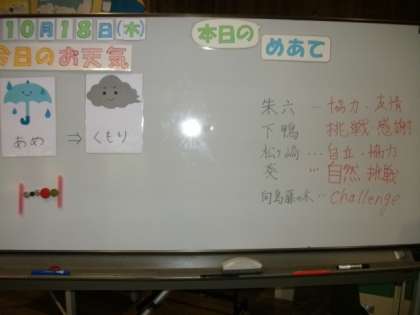 10月18日(木)
今日のお天気
あめ ⇒ くもり
本日の めあて
朱六 … 協力・友情
下鴨 挑戦・感謝
松ヶ崎 … 自立・協力
葵 … 自然・挑戦
向島藤の木 … Challenge